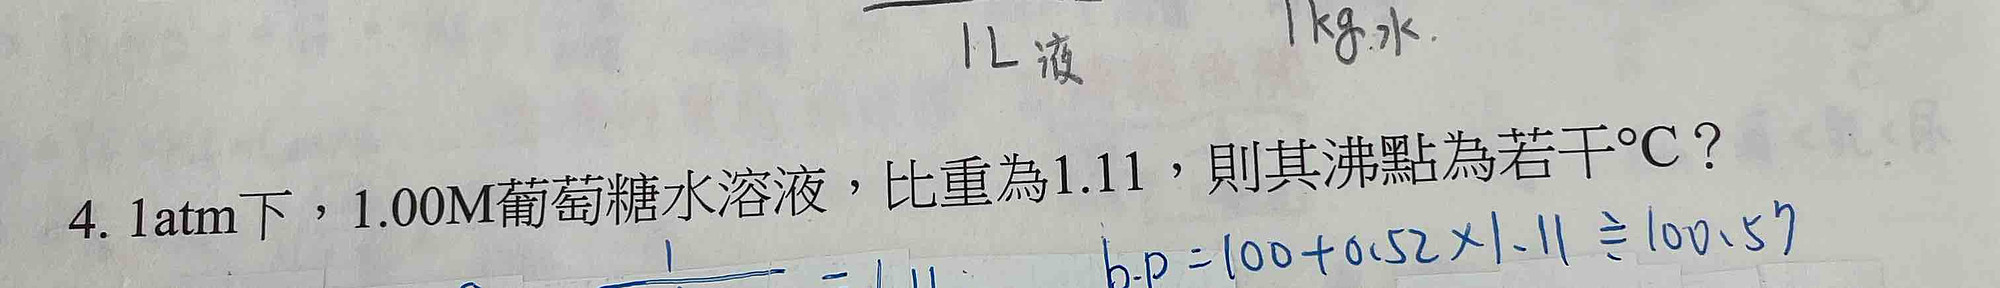 1L液 1kg水.
4. 1atm下，1.00M葡萄糖水溶液，比重為1.11，則其沸點為若干°C？
b.p = 100+0.52×1.11≒100.57
1